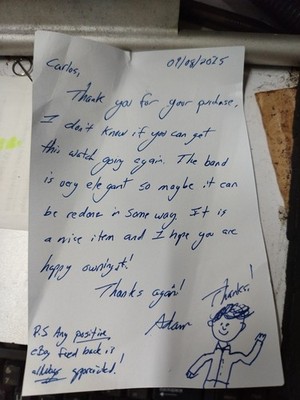 Carlos, 09/08/2025
Thank you for your purchase,
I don't know if you can get
this watch going again. The band
is very elegant so maybe it can
be redone in some way. It is
a nice item and I hope you are
happy owning it!
Thanks again!
Adam
Thanks!
P.S Any positive
eBay feed back is
always appreciated!